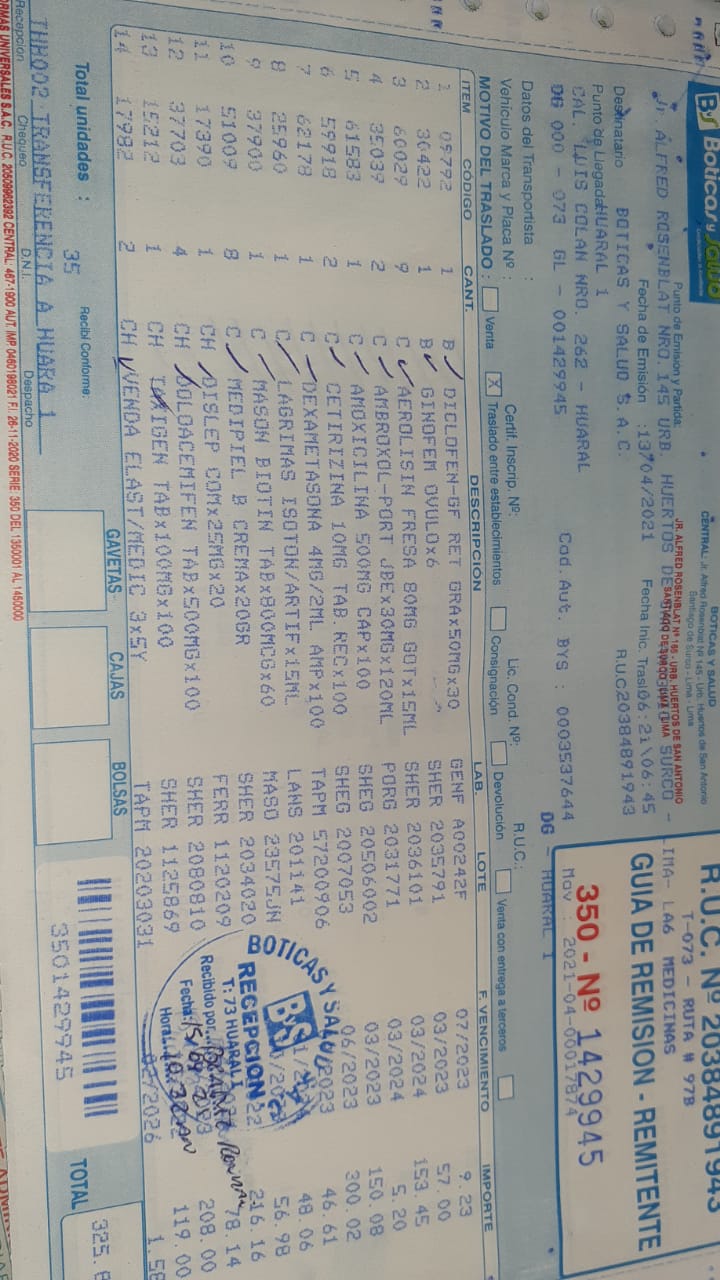 BS Boticas y Salud
BOTICAS Y SALUD
CENTRAL: Jr. Alfred Rosenblat Nº 145 - Urb. Huertos de San Antonio
Santiago de Surco - Lima - Lima
JR. ALFRED ROSENBLAT Nº 165 - URB. HUERTOS DE SAN ANTONIO
SANTIAGO DE SURCO - LIMA - LIMA
R.U.C. Nº 20384891943
T-073 - RUTA # 97B
LIMA- LA6 MEDICINAS
GUIA DE REMISION - REMITENTE
350 - Nº 1429945
Mov : 2021-04-00017874
DG - HUARAL 1
Punto de Emisión y Partida:
Jr ALFRED ROSENBLAT NRO.145 URB. HUERTOS DE SURCO -
Fecha de Emisión :13/04/2021 Fecha Inic. Tras 06:21\06:45
Destinatario BOTICAS Y SALUD S.A.C. R.U.C 20384891943
Punto de Llegada HUARAL 1
CAL. LUIS COLAN NRO. 262 - HUARAL
DG 000 - 073 GL - 001429945 Cod.Aut. BYS : 0003537644
Datos del Transportista :
Vehiculo Marca y Placa Nº : Certif. Inscrip. Nº: Lic. Cond. Nº: R.U.C.:
MOTIVO DEL TRASLADO : Venta X Traslado entre establecimientos Consignación Devolución Venta con entrega a terceros
ITEM CÓDIGO CANT. DESCRIPCIÓN LAB. LOTE F. VENCIMIENTO IMPORTE
1 09792 1 B DICLOFEN-GF RET GRAx50MGx30 GENF A00242F 07/2023 9.23
2 30422 1 B GINOFEM OVULOx6 SHER 2035791 03/2023 57.00
3 60029 9 C AEROLISIN FRESA 80MG GOTx15ML SHER 2036101 03/2024 153.45
4 35039 2 C AMBROXOL-PORT JBEx30MGx120ML PORG 2031771 03/2024 5.20
5 61583 1 C AMOXICILINA 500MG CAPx100 SHEG 20506002 03/2023 150.08
6 59918 2 C CETIRIZINA 10MG TAB.RECx100 SHEG 2007053 06/2023 300.02
7 62178 1 C DEXAMETASONA 4MG/2ML AMPx100 TAPM 57200906 46.61
8 25960 1 C LAGRIMAS ISOTON/ARTIFx15ML LANS 201141 48.06
9 37900 1 C MASON BIOTIN TABx800MCGx60 MASO 23575JN 56.98
10 51009 8 C MEDIPIEL B CREMAx20GR SHER 2034020 216.16
11 17390 1 CH DISLEP COMx25MGx20 FERR 1120209 78.14
12 37703 4 CH DOLOACEMIFEN TABx500MGx100 SHER 2080810 208.00
13 15212 1 CH TABx100MGx100 SHER 1125869 119.00
14 17982 2 CH VENDA ELAST/MEDIC 3x5Y TAPM 20203031 /2026 1.58
BOTICAS Y SALUD
BS
RECEPCION
T: 73 HUARAL 1
Recibido por:
Fecha:
Hora:
Total unidades : 35
Recibí Conforme:
GAVETAS CAJAS BOLSAS
3501429945
TOTAL 325.
THH002 TRANSFERENCIA A HUARA 1
Recepción Chequeo D.N.I. Despacho
FORMAS UNIVERSALES S.A.C. R.U.C. 20509982392 CENTRAL: 467-1900 AUT. IMP 0460198021 F.I. 26-11-2020 SERIE: 350 DEL 1350001 AL 1450000